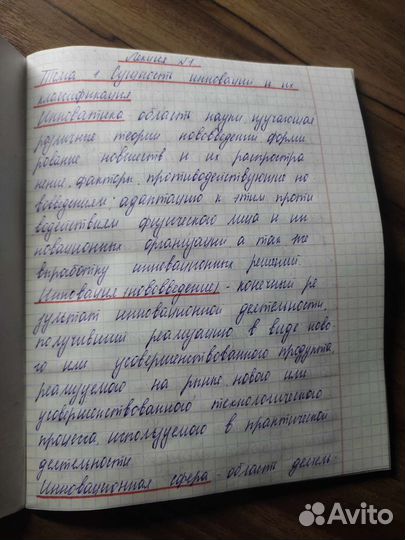 Лекция №1
Тема 1 Сущность инноваций и их
классификация
Инноватика область науки, изучающая
различные теории нововведений форми
рование новшеств и их распростра
нение, факторы, противодействующие но
вовведениям; адаптацию к этим проти
водействиям физического лица и ин
новационных организаций а так же
выработку инновационных решений.
Инновация (нововведение) - конечный ре
зультат инновационной деятельности,
получивший реализацию в виде ново-
го или усовершенствованного продукта,
реализуемого на рынке, нового или
усовершенствованного технологического
процесса, используемого в практической
деятельности
Инновационная сфера - область деятель-
Avito